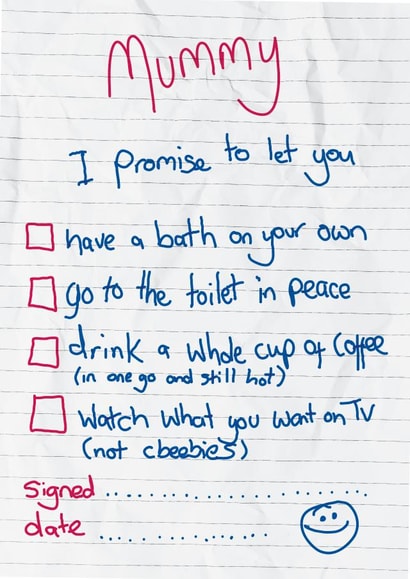 Mummy
I promise to let you
have a bath on your own
go to the toilet in peace
drink a whole cup of coffee
(in one go and still hot)
watch what you want on TV
(not cbeebies)
signed ................................
date ....................